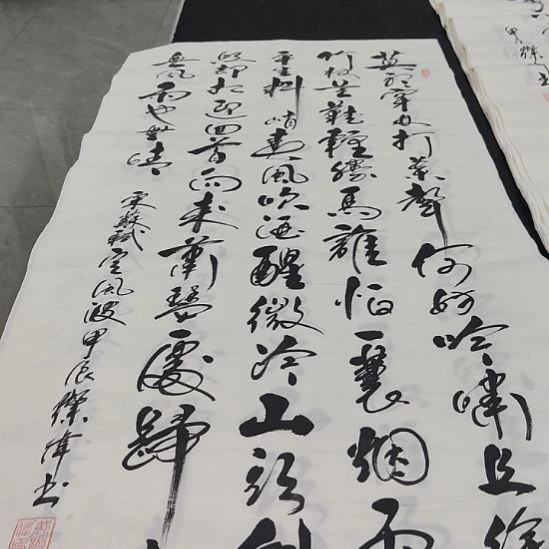 莫聽穿林打葉聲何妨吟嘯且徐
竹杖芒鞋輕勝馬誰怕一蓑烟雨
平生料峭春風吹酒醒微冷山頭斜
照却相迎回首向来蕭瑟處歸
無風雨也無晴
宋蘇軾定風波甲辰燦偉书